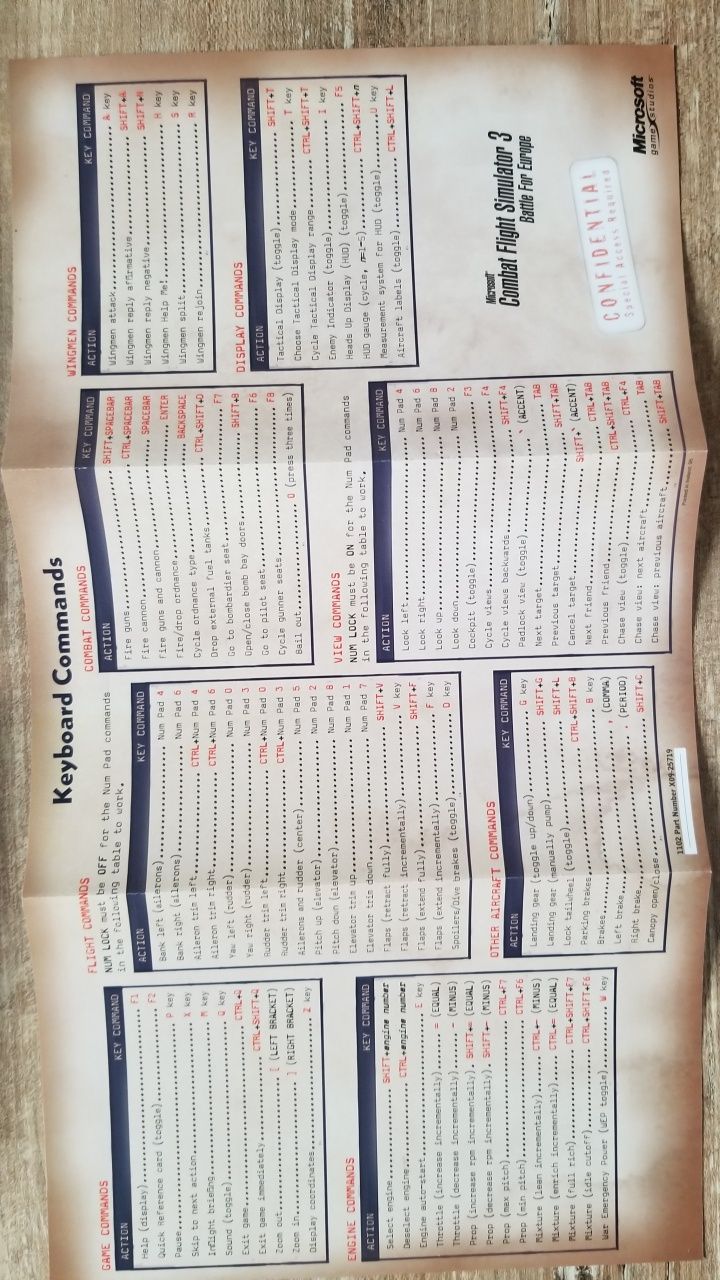 Keyboard Commands
GAME COMMANDS
ACTION KEY COMMAND
Help (display) F1
Quick Reference card (toggle) F2
Pause P key
Skip to next action X key
Inflight briefing M key
Sound (toggle) Q key
Exit game CTRL+Q
Exit game immediately CTRL+SHIFT+Q
Zoom out [ (LEFT BRACKET)
Zoom in ] (RIGHT BRACKET)
Display coordinates Z key
ENGINE COMMANDS
ACTION KEY COMMAND
Select engine SHIFT+engine number
Deselect engine CTRL+engine number
Engine auto-start E key
Throttle (increase incrementally) = (EQUAL)
Throttle (decrease incrementally) - (MINUS)
Prop (increase rpm incrementally) SHIFT+= (EQUAL)
Prop (decrease rpm incrementally) SHIFT+- (MINUS)
Prop (max pitch) CTRL+F7
Prop (min pitch) CTRL+F6
Mixture (lean incrementally) CTRL+- (MINUS)
Mixture (enrich incrementally) CTRL+= (EQUAL)
Mixture (full rich) CTRL+SHIFT+F7
Mixture (idle cutoff) CTRL+SHIFT+F6
War Emergency Power (WEP toggle) W key
FLIGHT COMMANDS
NUM LOCK must be OFF for the Num Pad commands
in the following table to work.
ACTION KEY COMMAND
Bank left (ailerons) Num Pad 4
Bank right (ailerons) Num Pad 6
Aileron trim left CTRL+Num Pad 4
Aileron trim right CTRL+Num Pad 6
Yaw left (rudder) Num Pad 0
Yaw right (rudder) Num Pad 3
Rudder trim left CTRL+Num Pad 0
Rudder trim right CTRL+Num Pad 3
Ailerons and rudder (center) Num Pad 5
Pitch up (elevator) Num Pad 2
Pitch down (elevator) Num Pad 8
Elevator trim up Num Pad 1
Elevator trim down Num Pad 7
Flaps (retract fully) SHIFT+V
Flaps (retract incrementally) V key
Flaps (extend fully) SHIFT+F
Flaps (extend incrementally) F key
Spoilers/Dive brakes (toggle) D key
OTHER AIRCRAFT COMMANDS
ACTION KEY COMMAND
Landing gear (toggle up/down) G key
Landing gear (manually pump) SHIFT+G
Lock tailwheel (toggle) SHIFT+L
Parking brakes CTRL+SHIFT+B
Brakes B key
Left brake , (COMMA)
Right brake . (PERIOD)
Canopy open/close SHIFT+C
1102 Part Number X09-25719
COMBAT COMMANDS
ACTION KEY COMMAND
Fire guns SHIFT+SPACEBAR
Fire cannon CTRL+SPACEBAR
Fire guns and cannon SPACEBAR
Fire/drop ordnance ENTER
Cycle ordnance type BACKSPACE
Drop external fuel tanks CTRL+SHIFT+D
Go to bombardier seat F7
Open/close bomb bay doors SHIFT+B
Go to pilot seat F6
Cycle gunner seats F8
Bail out O (press three times)
VIEW COMMANDS
NUM LOCK must be ON for the Num Pad commands
in the following table to work.
ACTION KEY COMMAND
Look left Num Pad 4
Look right Num Pad 6
Look up Num Pad 8
Look down Num Pad 2
Cockpit (toggle) F3
Cycle views F4
Cycle views backwards SHIFT+F4
Padlock view (toggle) ` (ACCENT)
Next target TAB
Previous target SHIFT+TAB
Cancel target SHIFT+` (ACCENT)
Next friend CTRL+TAB
Previous friend CTRL+SHIFT+TAB
Chase view (toggle) CTRL+F4
Chase view: next aircraft TAB
Chase view: previous aircraft SHIFT+TAB
WINGMEN COMMANDS
ACTION KEY COMMAND
Wingmen attack A key
Wingmen reply affirmative SHIFT+A
Wingmen reply negative SHIFT+N
Wingmen help me! H key
Wingmen split S key
Wingmen rejoin R key
DISPLAY COMMANDS
ACTION KEY COMMAND
Tactical Display (toggle) SHIFT+T
Choose Tactical Display mode T key
Cycle Tactical Display range CTRL+SHIFT+T
Enemy Indicator (toggle) I key
Heads Up Display (HUD) (toggle) F5
HUD gauge (cycle, n=1-5) CTRL+SHIFT+n
Measurement system for HUD (toggle) U key
Aircraft labels (toggle) CTRL+SHIFT+L
Microsoft
Combat Flight Simulator 3
Battle For Europe
CONFIDENTIAL
Special Access Required
Microsoft
game studios